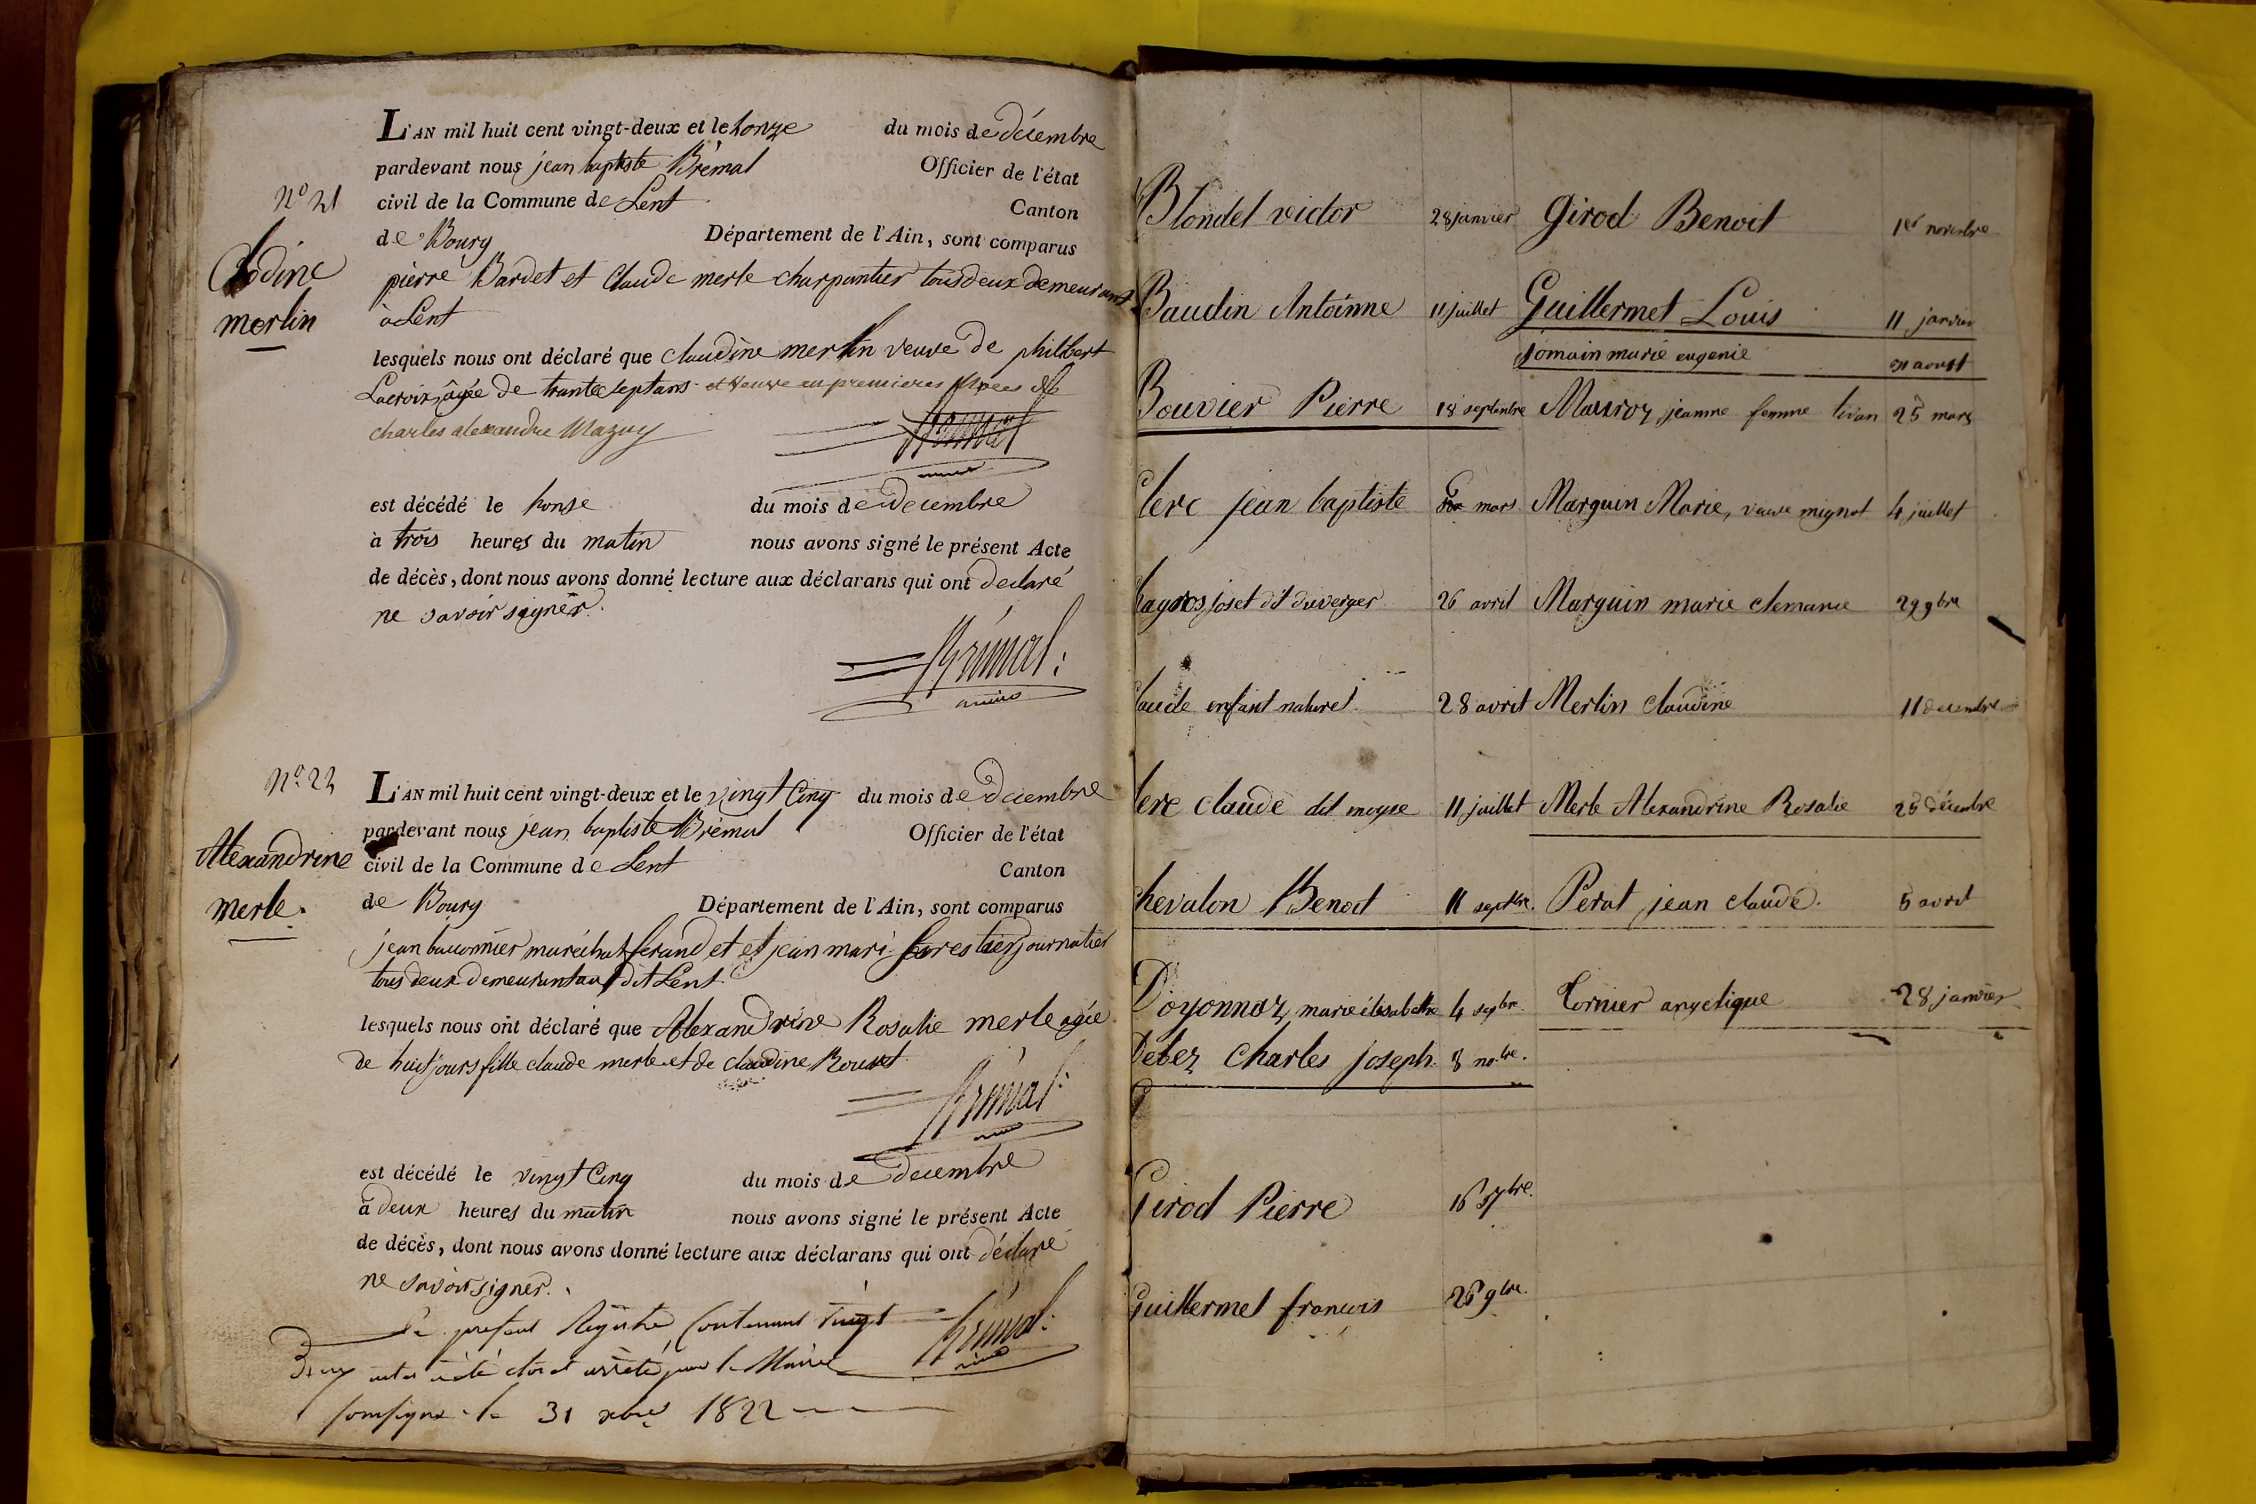 L'AN mil huit cent vingt-deux et le honze du mois de décembre
pardevant nous jean baptiste Brémal Officier de l'état
N° 21
civil de la Commune de Lent Canton
de Bourg Département de l'Ain, sont comparus
Clodine
merlin
pierre Bardet et Claude merle charpantier tous deux demeurant
à Lent
lesquels nous ont déclaré que claudine merlin veuve de philibert
Lacroix, âgée de trante sept ans et veuve en premieres Noces de
charles alexandre Mazuy
Brémal
est décédé le honse du mois de decembre
à trois heures du matin nous avons signé le présent Acte
de décès, dont nous avons donné lecture aux déclarans qui ont declaré
ne savoir signer.
Brémal
N° 22
L'AN mil huit cent vingt-deux et le vingt Cinq du mois de Decembre
pardevant nous jean baptiste Brémal Officier de l'état
Alexandrine
merle.
civil de la Commune de Lent Canton
de Bourg Département de l'Ain, sont comparus
jean maréchal ferand et et jean mari journalier
tous deux demeurant au dit Lent
lesquels nous ont déclaré que Alexandrine Rosalie merle agée
de huit jours fille claude merle et de claudine
Brémal
est décédé le vingt Cinq du mois de decembre
à deux heures du matin nous avons signé le présent Acte
de décès, dont nous avons donné lecture aux déclarans qui ont déclaré
ne savoir signer.
Le present Registre Contenant vingt
Deux actes a été clos et arrêté par le Maire
Brémal
soussigné le 31 xbre 1822
Blondel victor 28 janvier Girod Benoit 1er novembre
Baudin Antoinne 11 juillet Guillermet Louis 11 janvier
marie eugenie aoust
Bouvier Pierre 18 septembre jeanne femme 25 mars
Clerc jean baptiste mars Marguin Marie, veuve mignot 4 juillet
joset dit duverger 26 avril Marguin marie clemance 29 9bre
Claude enfant naturel 28 avril Merlin claudine 11 decembre
Clerc claude dit moyse 11 juillet Merle Alexandrine Rosalie 25 décembre
Chevalon Benoit 11 septbre. Perat jean claude. 5 avril
Doyonnaz, marie élisabethe 4 sepbre Tornier angelique 28 janvier
Debez Charles joseph. 8 nobre.
Girod Pierre 16 bre.
Guillermet francois 26 9bre.